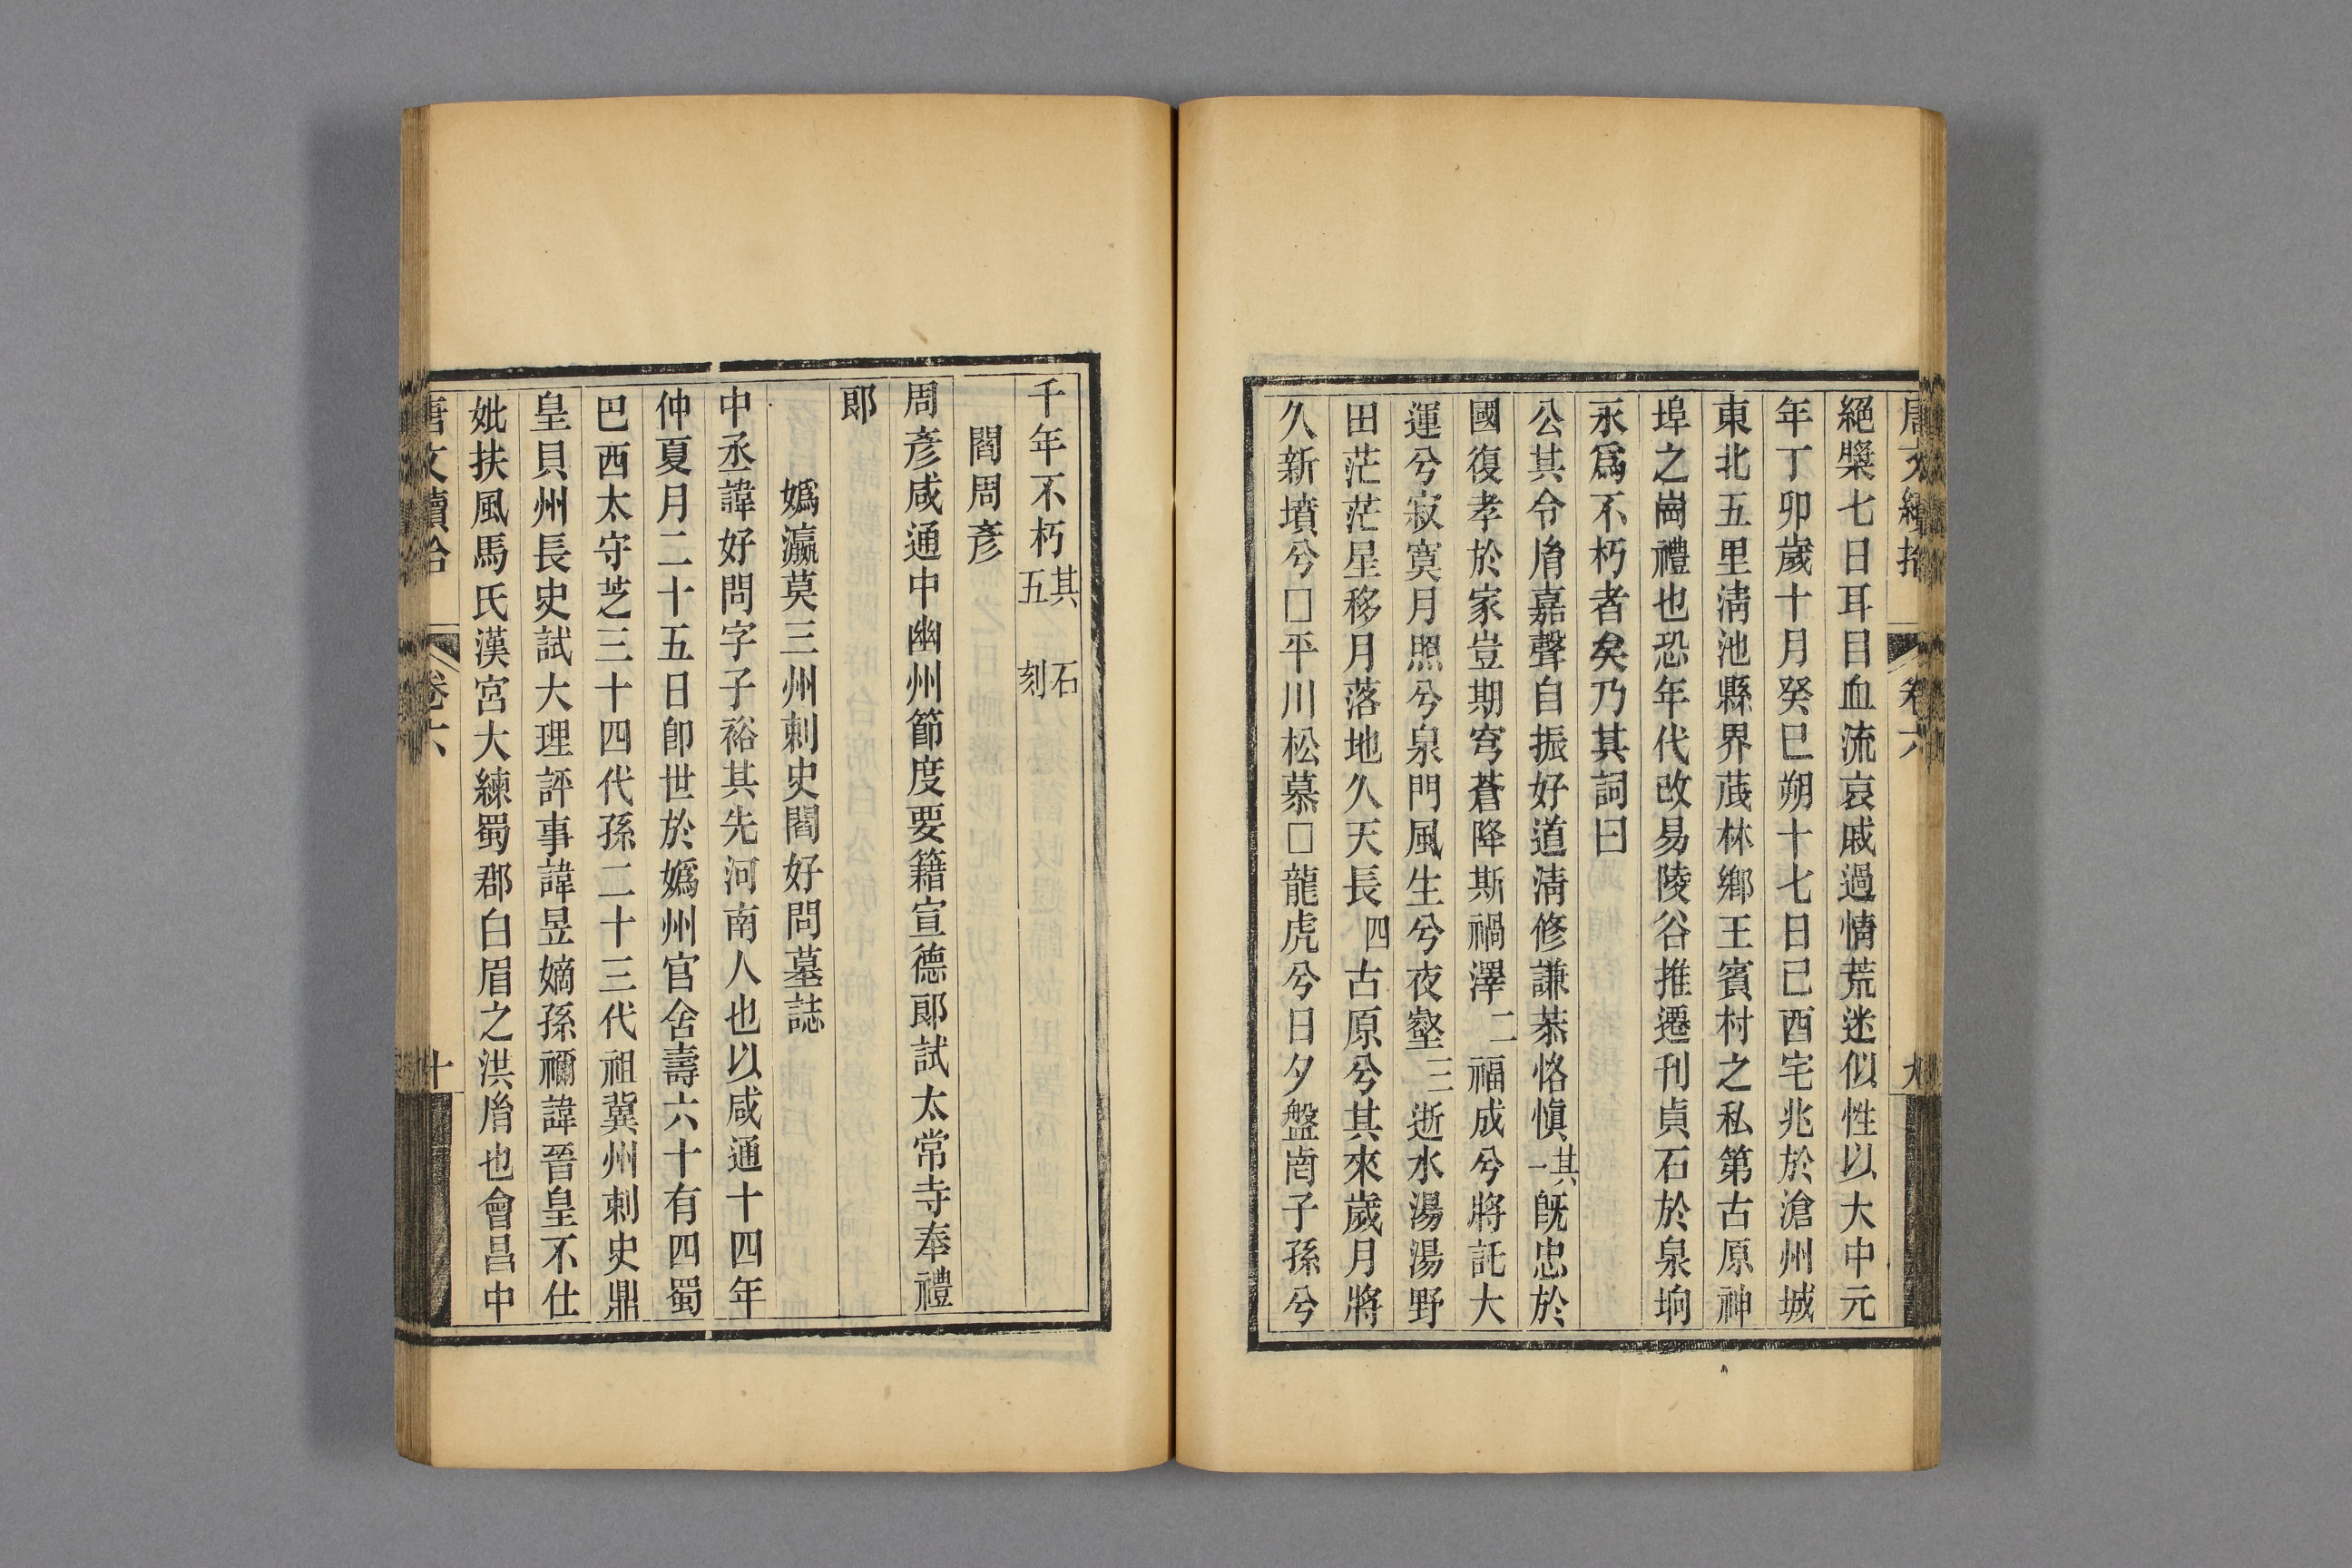 唐文續拾 卷六 九
絕槳七日耳目血流哀戚過情荒迷似性以大中元
年丁卯歲十月癸巳朔十七日己酉宅兆於滄州城
東北五里淸池縣界茂林鄉王賓村之私第古原神
埠之崗禮也恐年代改易陵谷推遷刊貞石於泉埛
永爲不朽者矣乃其詞曰
公其令胤嘉聲自振好道淸修謙恭恪愼其一旣忠於
國復孝於家豈期穹蒼降斯禍澤二福成兮將託大
運兮寂寞月照兮泉門風生兮兮夜壑三逝水湯湯野
田茫茫星移月落地久天長四古原兮其來歲月將
久新墳兮□平川松慕□龍虎兮日夕盤崗子孫兮
千年不朽其五 石刻
閻周彥
周彥咸通中幽州節度要籍宣德郞試太常寺奉禮
郞
嬀瀛莫三州刺史閻好問墓誌
中丞諱好問字子裕其先河南人也以咸通十四年
仲夏月二十五日卽世於嬀州官舍壽六十有四蜀
巴西太守芝三十四代孫二十三代祖冀州刺史鼎
皇貝州長史試大理評事諱昱嫡孫禰諱晉皇不仕
妣扶風馬氏漢宮大練蜀郡白眉之洪胤也會昌中
唐文續拾 卷六 十